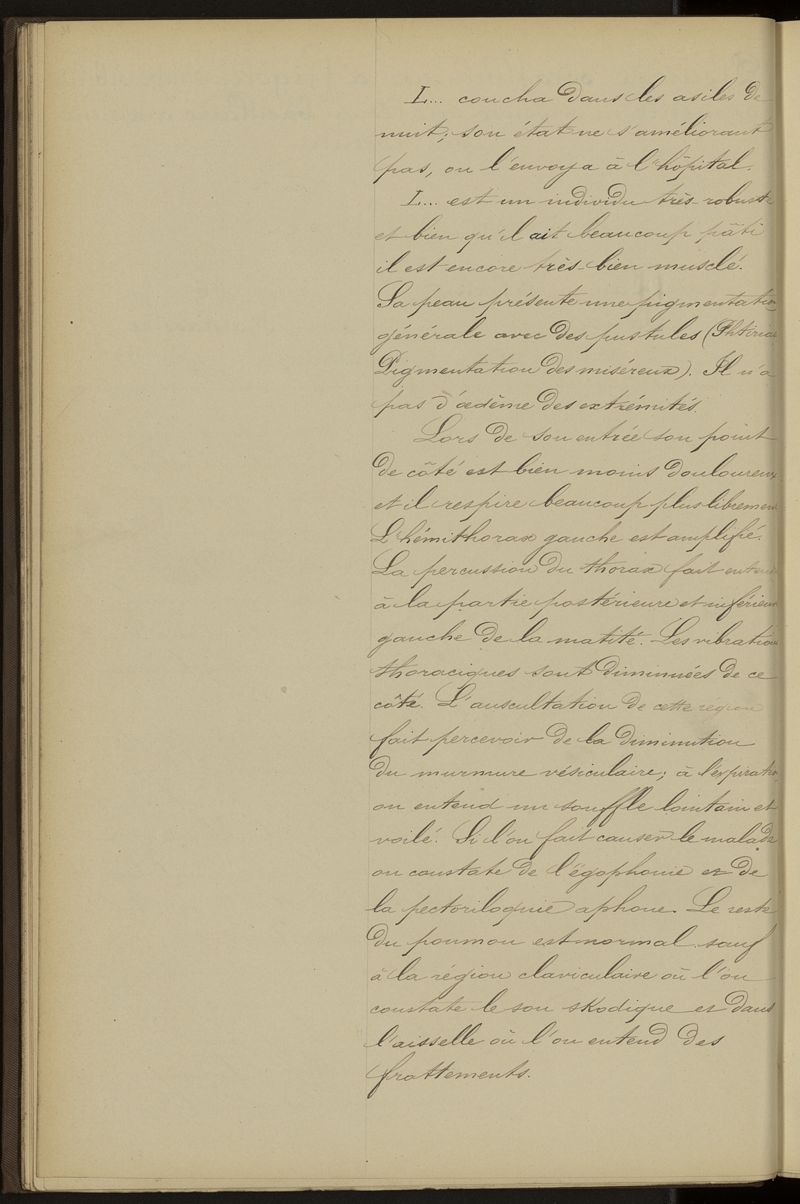 L... coucha dans les asiles de
nuit; son état ne s'améliorant
pas, on l'envoya à l'hôpital.
L... est un individu très robuste
et bien qu'il ait beaucoup pâti
il est encore très-bien musclé.
Sa peau présente une pigmentation
générale avec des pustules (Phtiriase
Pigmentation des miséreux). Il n'a
pas d'œdème des extrémités.
Lors de son entrée son point
de côté est bien moins douloureux
et il respire beaucoup plus librement
L'hémithorax gauche est amplifié.
La percussion du thorax fait entendre
à la partie postérieure et inférieure
gauche de la matité. Les vibrations
thoraciques sont diminuées de ce
côté. L'auscultation de cette région
fait percevoir de la diminution
du murmure vésiculaire; à l'expiration
on entend un souffle lointain et
voilé. Si l'on fait causer le malade
on constate de l'égophonie et de
la pectoriloquie aphone. Le reste
du poumon est normal sauf
à la région claviculaire où l'on
constate le son skodique et dans
l'aisselle où l'on entend des
frottements.